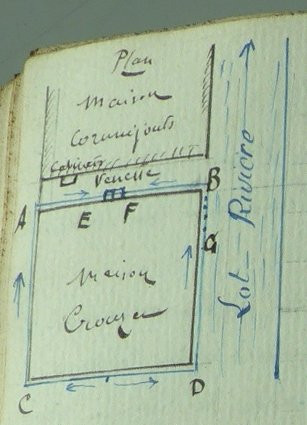 Plan
Maison
Cornuéjouls
Cabinets
Venelle
A
B
E F
G
Maison
Crouzet
C
D
Lot Rivière